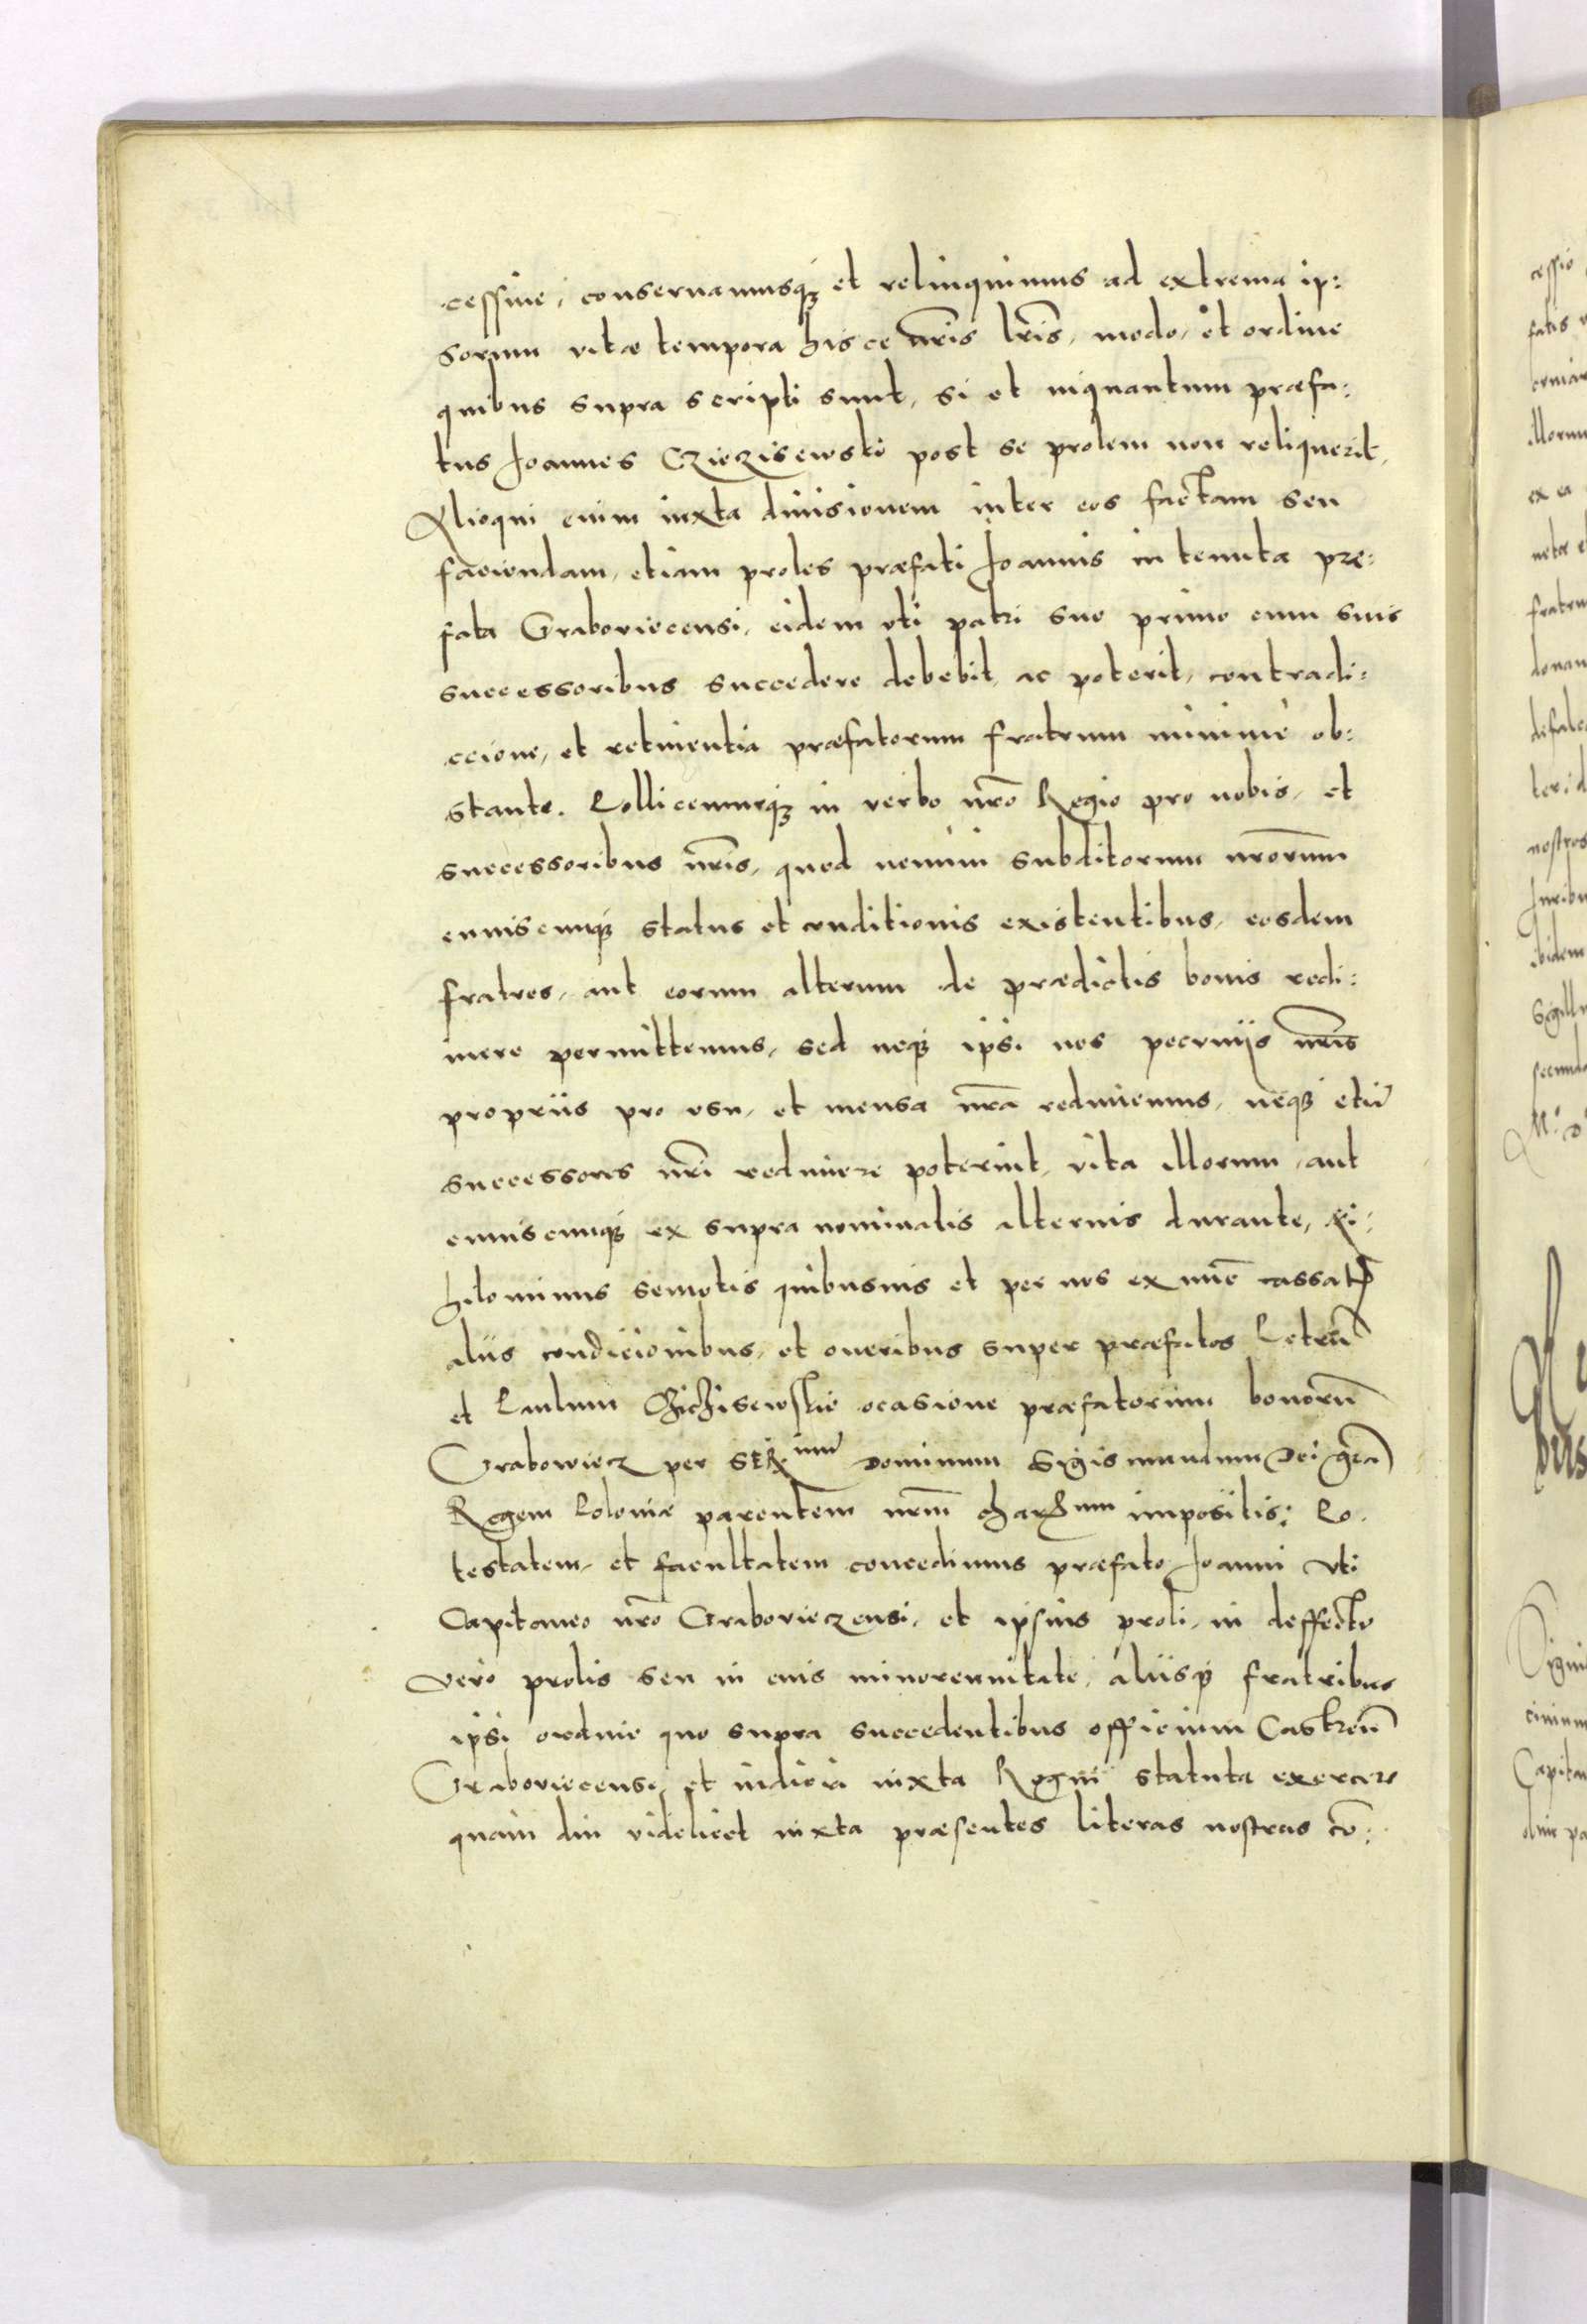 cessiue, conseruamusq₃ et relinquimus ad extrema ip:
sorum vitæ tempora hisce nr̃is lr̃is, modo, et ordine
quibus supra scripti sunt, si et inquantum præfa:
tus Joannes Czieczisewski post se prolem non reliquerit,
Alioqui enim iuxta diuisionem inter eos factam seu
faciendam, etiam proles præfati Joannis in tenuta præ:
fata Graboviecensi, eidem vti patri suo primo cum suis
successoribus succedere debebit, ac poterit, contradi:
ccione, et retinentia præfatorum fratrum minime ob:
stante. Pollicemurq₃ in verbo nr̃o Regio pro nobis, et
successoribus nr̃is, quod nemini subditorum nr̃orum
cuiuscunq₃ status et conditionis existentibus, eosdem
fratres, aut eorum alterum de prædictis bonis redi:
mere permittemus, sed neq₃ ipsi nos pecuniis nr̃is
propriis pro vsu, et mensa nr̃a redimemus, neq₃ etiã
successores nr̃i redimere poterint, vita illorum, aut
cuiuscunq₃ ex supra nominatis alternis durante, Ni:
hilominus semotis quibusuis et per nos ex nũc cassatis
aliis condicionibus, et oneribus super præfatos Petrũ
et Paulum Chichisewskie ocasione præfatorum bonorũ
Grabowiecz per Ser^mum Dominum Sigismundum Dei gr̃a
Regem Poloniæ parentem nr̃m char^mum impositis; Po:
testatem, et facultatem concedimus præfato Joanni vti
Capitaneo nr̃o Grabovieczensi, et ipsius proli, in deffectu
vero prolis seu in eius minorennitate, aliisq₃ fratribus
ipsi ordine quo supra succedentibus officium Castreñ
Graboviecensi, et iudicia iuxta Regni statuta exercere
quam diu videlicet iuxta præsentes literas nostras cõ: